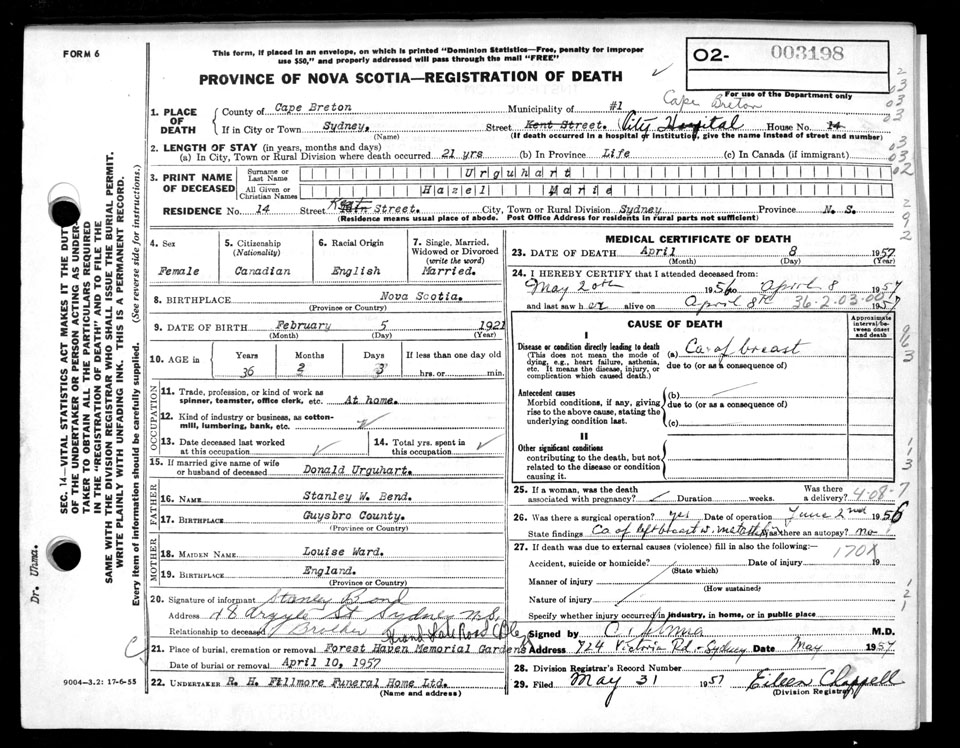 FORM 6
This form, if placed in an envelope, on which is printed "Dominion Statistics—Free, penalty for improper
use $50," and properly addressed will pass through the mail "FREE"
PROVINCE OF NOVA SCOTIA—REGISTRATION OF DEATH
02- 003198
For use of the Department only
1. PLACE OF DEATH
County of Cape Breton Municipality of #1 Cape Breton
If in City or Town Sydney. Street Kent Street. City Hospital House No. 14
(Name) (If death occurred in a hospital or institution, give the name instead of street and number)
2. LENGTH OF STAY (in years, months and days)
(a) In City, Town or Rural Division where death occurred 21 yrs (b) In Province Life (c) In Canada (if immigrant)
3. PRINT NAME OF DECEASED
Surname or Last Name Urquhart
All Given or Christian Names Hazel Marie
RESIDENCE No. 14 Street Kent Street. City, Town or Rural Division Sydney Province N. S.
(Residence means usual place of abode. Post Office Address for residents in rural parts not sufficient)
4. Sex
Female
5. Citizenship
(Nationality)
Canadian
6. Racial Origin
English
7. Single, Married,
Widowed or Divorced
(write the word)
Married.
8. BIRTHPLACE Nova Scotia.
(Province or Country)
9. DATE OF BIRTH February 5 1921
(Month) (Day) (Year)
10. AGE in Years Months Days If less than one day old
36 2 3 hrs. or min.
OCCUPATION
11. Trade, profession, or kind of work as
spinner, teamster, office clerk, etc. At home.
12. Kind of industry or business, as cotton-
mill, lumbering, bank, etc.
13. Date deceased last worked
at this occupation
14. Total yrs. spent in
this occupation
15. If married give name of wife
or husband of deceased Donald Urquhart.
FATHER
16. NAME Stanley W. Bond.
17. BIRTHPLACE Guysbro County.
(Province or Country)
MOTHER
18. MAIDEN NAME Louise Ward.
19. BIRTHPLACE England.
(Province or Country)
20. Signature of informant Stanley Bond
Address 48 Argyle St Sydney N.S.
Relationship to deceased Brother
Grand Lake Road
21. Place of burial, cremation or removal Forest Haven Memorial Gardens
Date of burial or removal April 10, 1957
22. UNDERTAKER R. H. Fillmore Funeral Home Ltd.
(Name and address)
9004-3.2: 17-6-55
MEDICAL CERTIFICATE OF DEATH
23. DATE OF DEATH April 8 1957
(Month) (Day) (Year)
24. I HEREBY CERTIFY that I attended deceased from:
May 20th 1956 to April 8 1957
and last saw her alive on April 8th 1957
36-2-03-00
CAUSE OF DEATH
Approximate
interval between
onset
and death
I
Disease or condition directly leading to death
(This does not mean the mode of
dying, e.g., heart failure, asthenia,
etc. It means the disease, injury, or
complication which caused death.)
(a) Ca. of breast
due to (or as a consequence of)
Antecedent causes
Morbid conditions, if any, giving
rise to the above cause, stating the
underlying condition last.
(b)
due to (or as a consequence of)
(c)
II
Other significant conditions
contributing to the death, but not
related to the disease or condition
causing it.
25. If a woman, was the death
associated with pregnancy? Duration weeks. Was there
a delivery? 4-08-7
26. Was there a surgical operation? yes Date of operation June 2nd 1956
State findings Ca of left breast w. Was there an autopsy? no
27. If death was due to external causes (violence) fill in also the following:—
170X
Accident, suicide or homicide? Date of injury 19
(State which)
Manner of injury
(How sustained)
Nature of injury
Specify whether injury occurred in industry, in home, or in public place
Signed by M.D.
Address 724 Victoria Rd - Sydney Date May 1957
28. Division Registrar's Record Number
29. Filed May 31 1957 Eileen Chappell
(Division Registrar)
SEC. 14—VITAL STATISTICS ACT MAKES IT THE DUTY
OF THE UNDERTAKER OR PERSON ACTING AS UNDER-
TAKER TO OBTAIN ALL THE PARTICULARS REQUIRED
IN THE "REGISTRATION OF DEATH" AND TO FILE THE
SAME WITH THE DIVISION REGISTRAR WHO SHALL ISSUE THE BURIAL PERMIT.
WRITE PLAINLY WITH UNFADING INK. THIS IS A PERMANENT RECORD.
Every item of information should be carefully supplied. (See reverse side for instructions.)